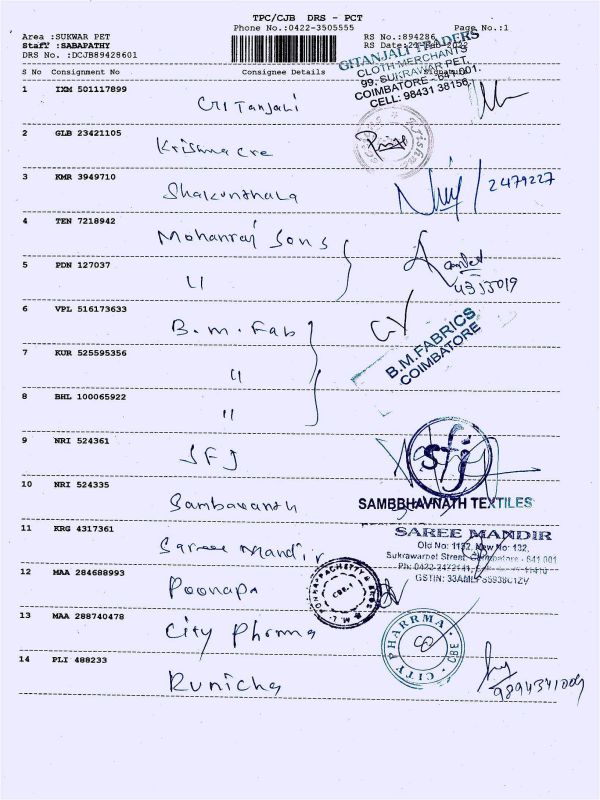 TPC/CJB DRS - PCT
Phone No.:0422-3505555
Page No.:1
Area :SUKWAR PET
RS No.:894286
Staff :SABAPATHY
RS Date:21-Feb-2022
DRS No. :DCJB89428601
S No Consignment No Consignee Details Signature
GITANJALI TRADERS
CLOTH MERCHANTS
99, SUKRAWAR PET,
COIMBATORE - 641 001.
CELL: 98431 38156
1 IXM 501117899 Gitanjali
2 GLB 23421105 Krishna cre
3 KMR 3949710 Shakunthala 2479227
4 TEN 7218942 Mohanraj Sons
5 PDN 127037 " 4355019
6 VPL 516173633 B.m.Fab
B.M.FABRICS
COIMBATORE
7 KUR 525595356 "
8 BHL 100065922 "
9 NRI 524361 SFJ
sfj
SAMBBHAVNATH TEXTILES
10 NRI 524335 Sambavanth
SAREE MANDIR
Old No: 1132, New No: 132,
Sukrawarpet Street, Coimbatore - 641 001
Ph: 0422-2472141,
GSTIN: 33AML
11 KRG 4317361 Saree Mandir
12 MAA 284688993 Poonapa
CBE-1
13 MAA 288740478 City Pharma
CITY PHARRMA CBE
14 PLI 488233 Runicha
9894341009